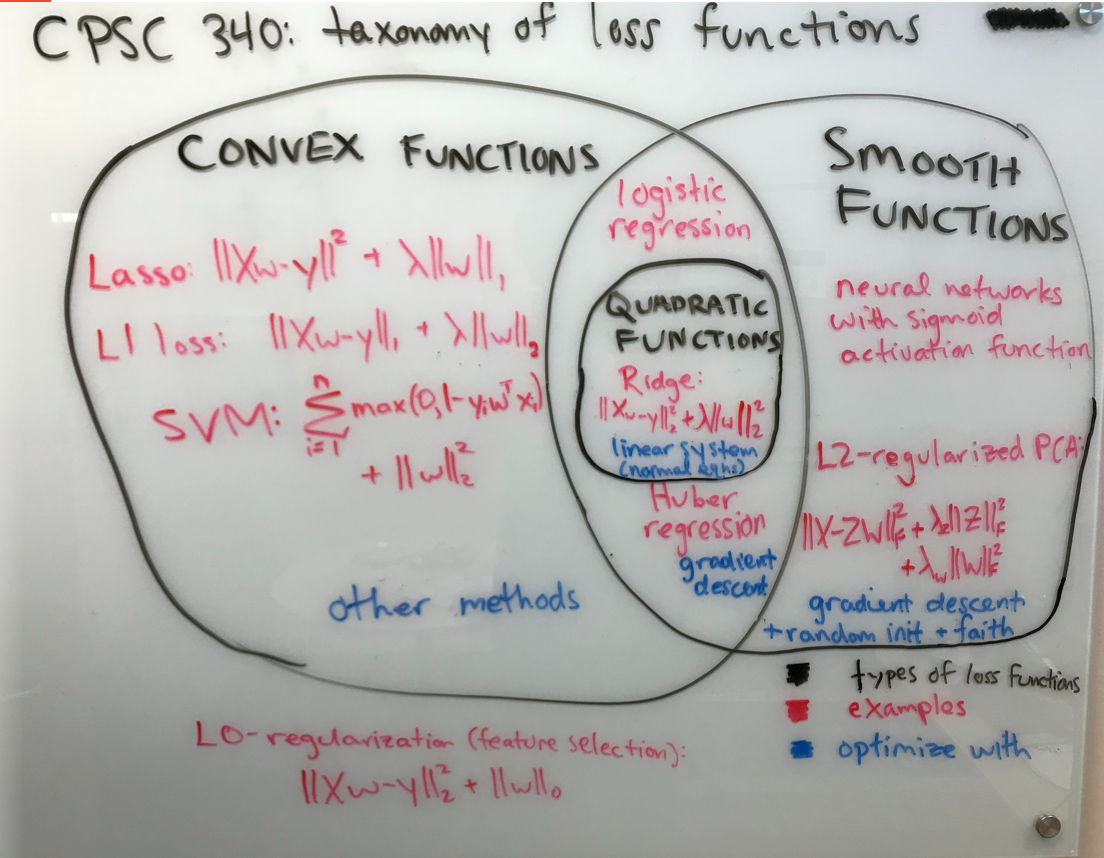 CPSC 340: taxonomy of loss functions
CONVEX FUNCTIONS
Lasso: ||Xw-y||² + λ||w||₁
L1 loss: ||Xw-y||₁ + λ||w||₂
SVM: Σᵢ₌₁ⁿ max(0,1-yᵢwᵀxᵢ)
+ ||w||₂²
other methods
logistic
regression
QUADRATIC
FUNCTIONS
Ridge:
||Xw-y||₂² + λ||w||₂²
linear system
(normal eqns)
Huber
regression
gradient
descent
SMOOTH
FUNCTIONS
neural networks
with sigmoid
activation function
L2-regularized PCA:
||X-ZW||_F² + λ_z||Z||_F²
+ λ_w||W||_F²
gradient descent
+random init + faith
types of loss functions
examples
optimize with
L0-regularization (feature selection):
||Xw-y||₂² + ||w||₀